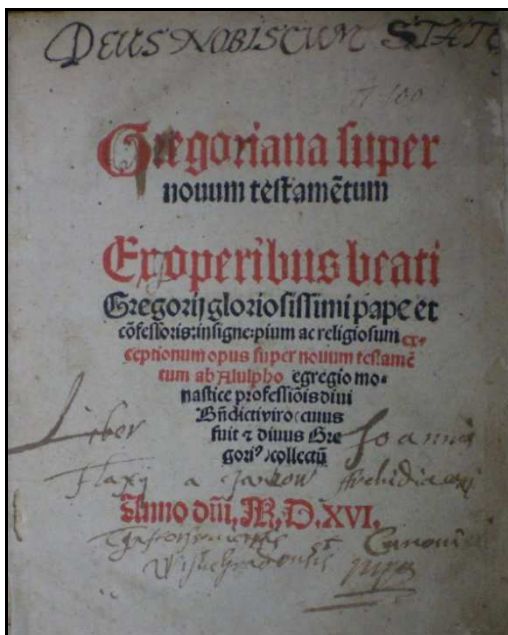 DEUS NOBISCUM STATE
Gregoriana super
nouum testamētum
Ex operibus beati
Gregorij gloriosissimi pape et
cōfessoris: insigne: pium ac religiosum ex-
ceptionum opus super nouum testamē
tum ab Alulpho egregio mo-
nastice professiōis diui
Bn̄dicti viro (cuius
fuit ⁊ diuus Gre
gori⁹) collectū
Liber Joannis
Flaxij a
Anno dn̄i, M, D. XVI.
Canonici